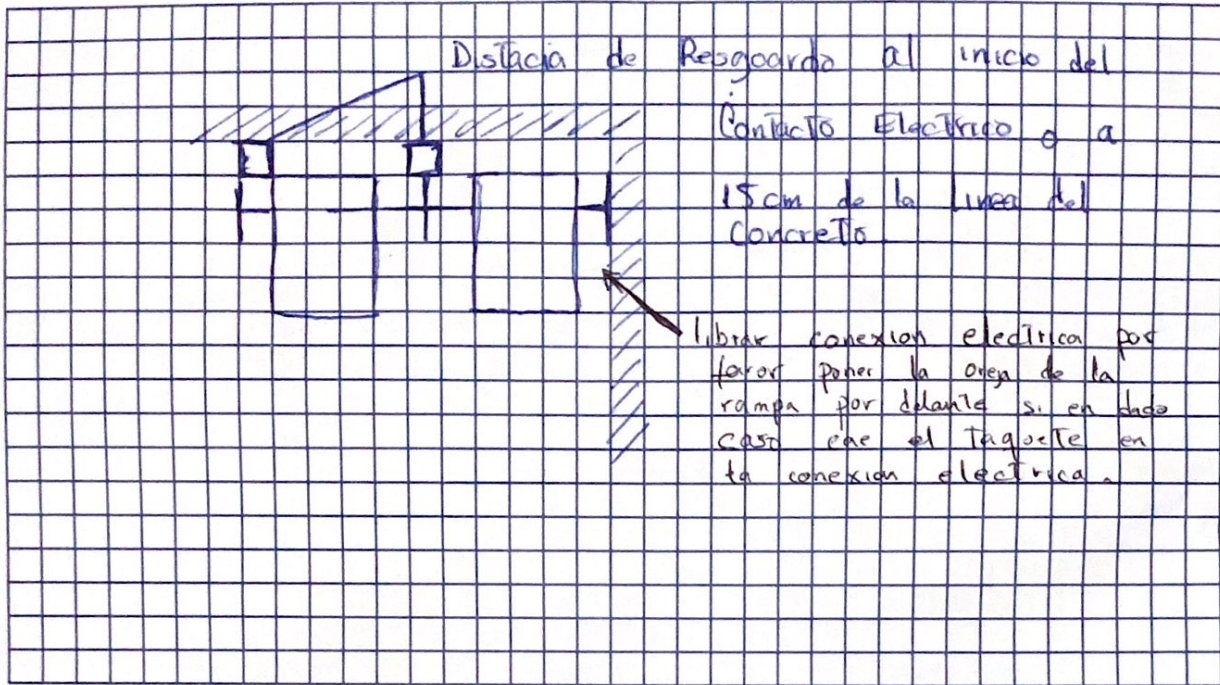 Distacia de Resgoardo al inicio del
Contacto Electrico o a
15cm de la linea del
Concreto
librar conexion electrica por
favor poner la oreja de la
rampa por delante si en dado
caso cae el taquete en
la conexion electrica.